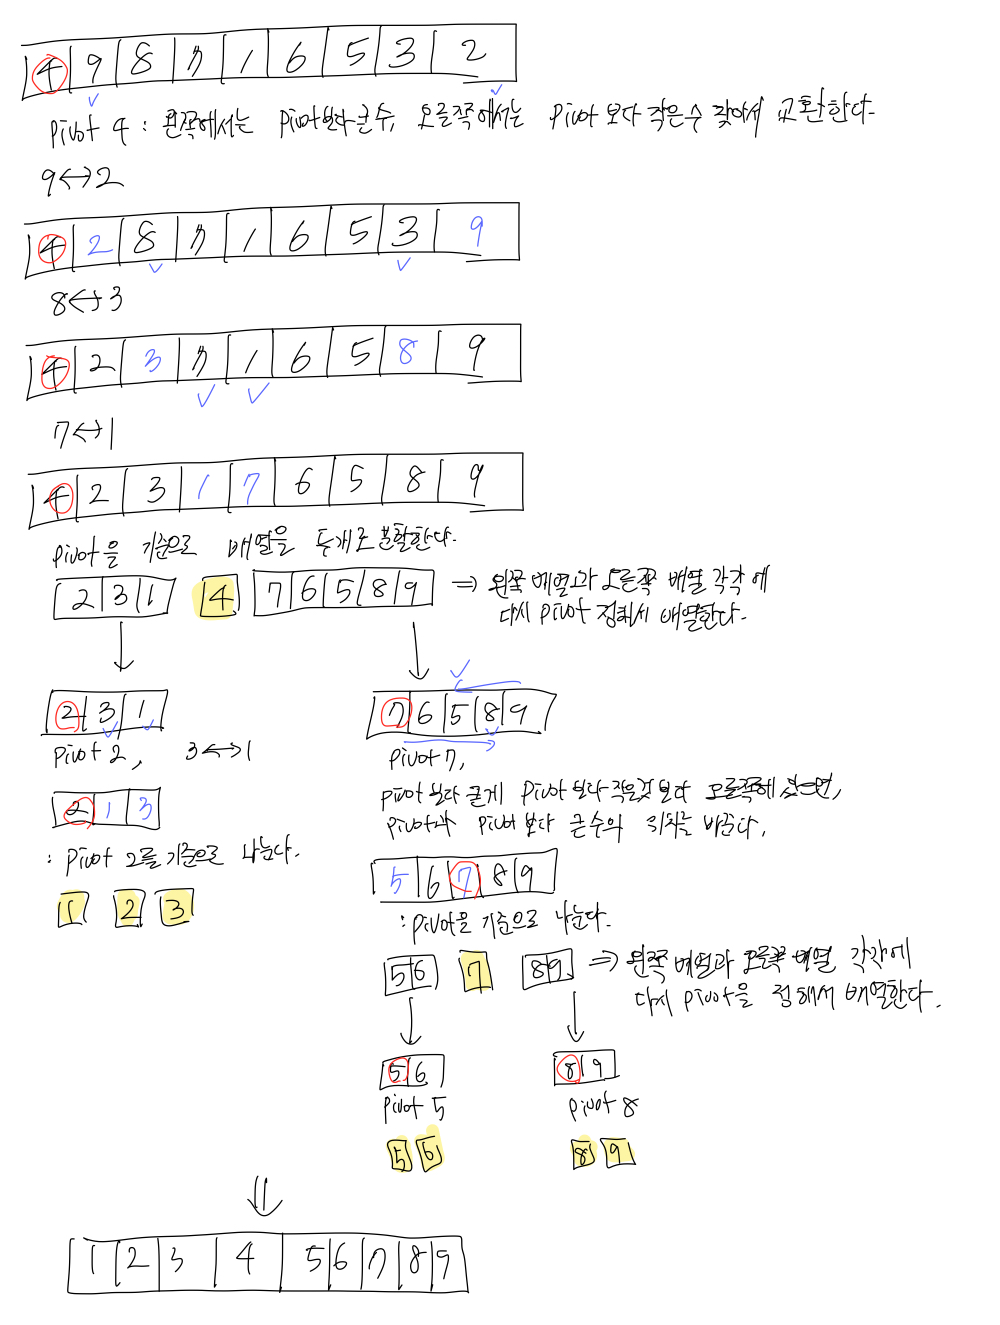 4 9 8 7 1 6 5 3 2
Pivot 4 : 왼쪽에서는 pivot보다 큰수, 오른쪽에서는 pivot 보다 작은수 찾아서 교환한다.
9↔2
4 2 8 7 1 6 5 3 9
8↔3
4 2 3 7 1 6 5 8 9
7↔1
4 2 3 1 7 6 5 8 9
Pivot을 기준으로 배열을 두개로 분할한다.
2 3 1 4 7 6 5 8 9 ⇒ 왼쪽 배열과 오른쪽 배열 각각에
다시 pivot 정해서 배열한다.
2 3 1
Pivot 2, 3↔1
2 1 3
: Pivot 2를 기준으로 나눈다.
1 2 3
7 6 5 8 9
Pivot 7,
pivot 보다 큰게 pivot 보다 작은것 보다 오른쪽에 있으면,
pivot과 pivot 보다 큰수의 위치를 바꾼다.
5 6 7 8 9
: pivot을 기준으로 나눈다.
5 6 7 8 9 ⇒ 왼쪽 배열과 오른쪽 배열 각각에
다시 pivot을 정해서 배열한다.
5 6 8 9
Pivot 5 Pivot 8
5 6 8 9
⇓
1 2 3 4 5 6 7 8 9